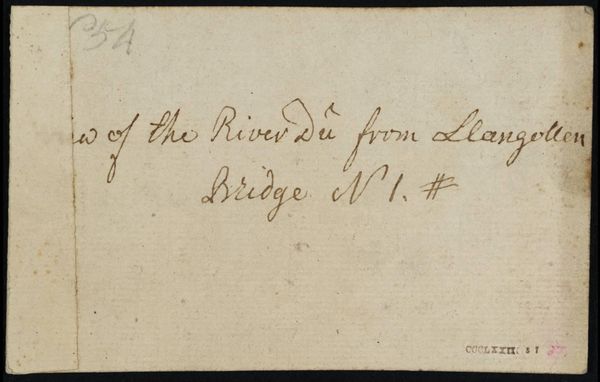 54
w of the River Dũ from Llangollen
Bridge N 1. #
CCCLXXII. 57